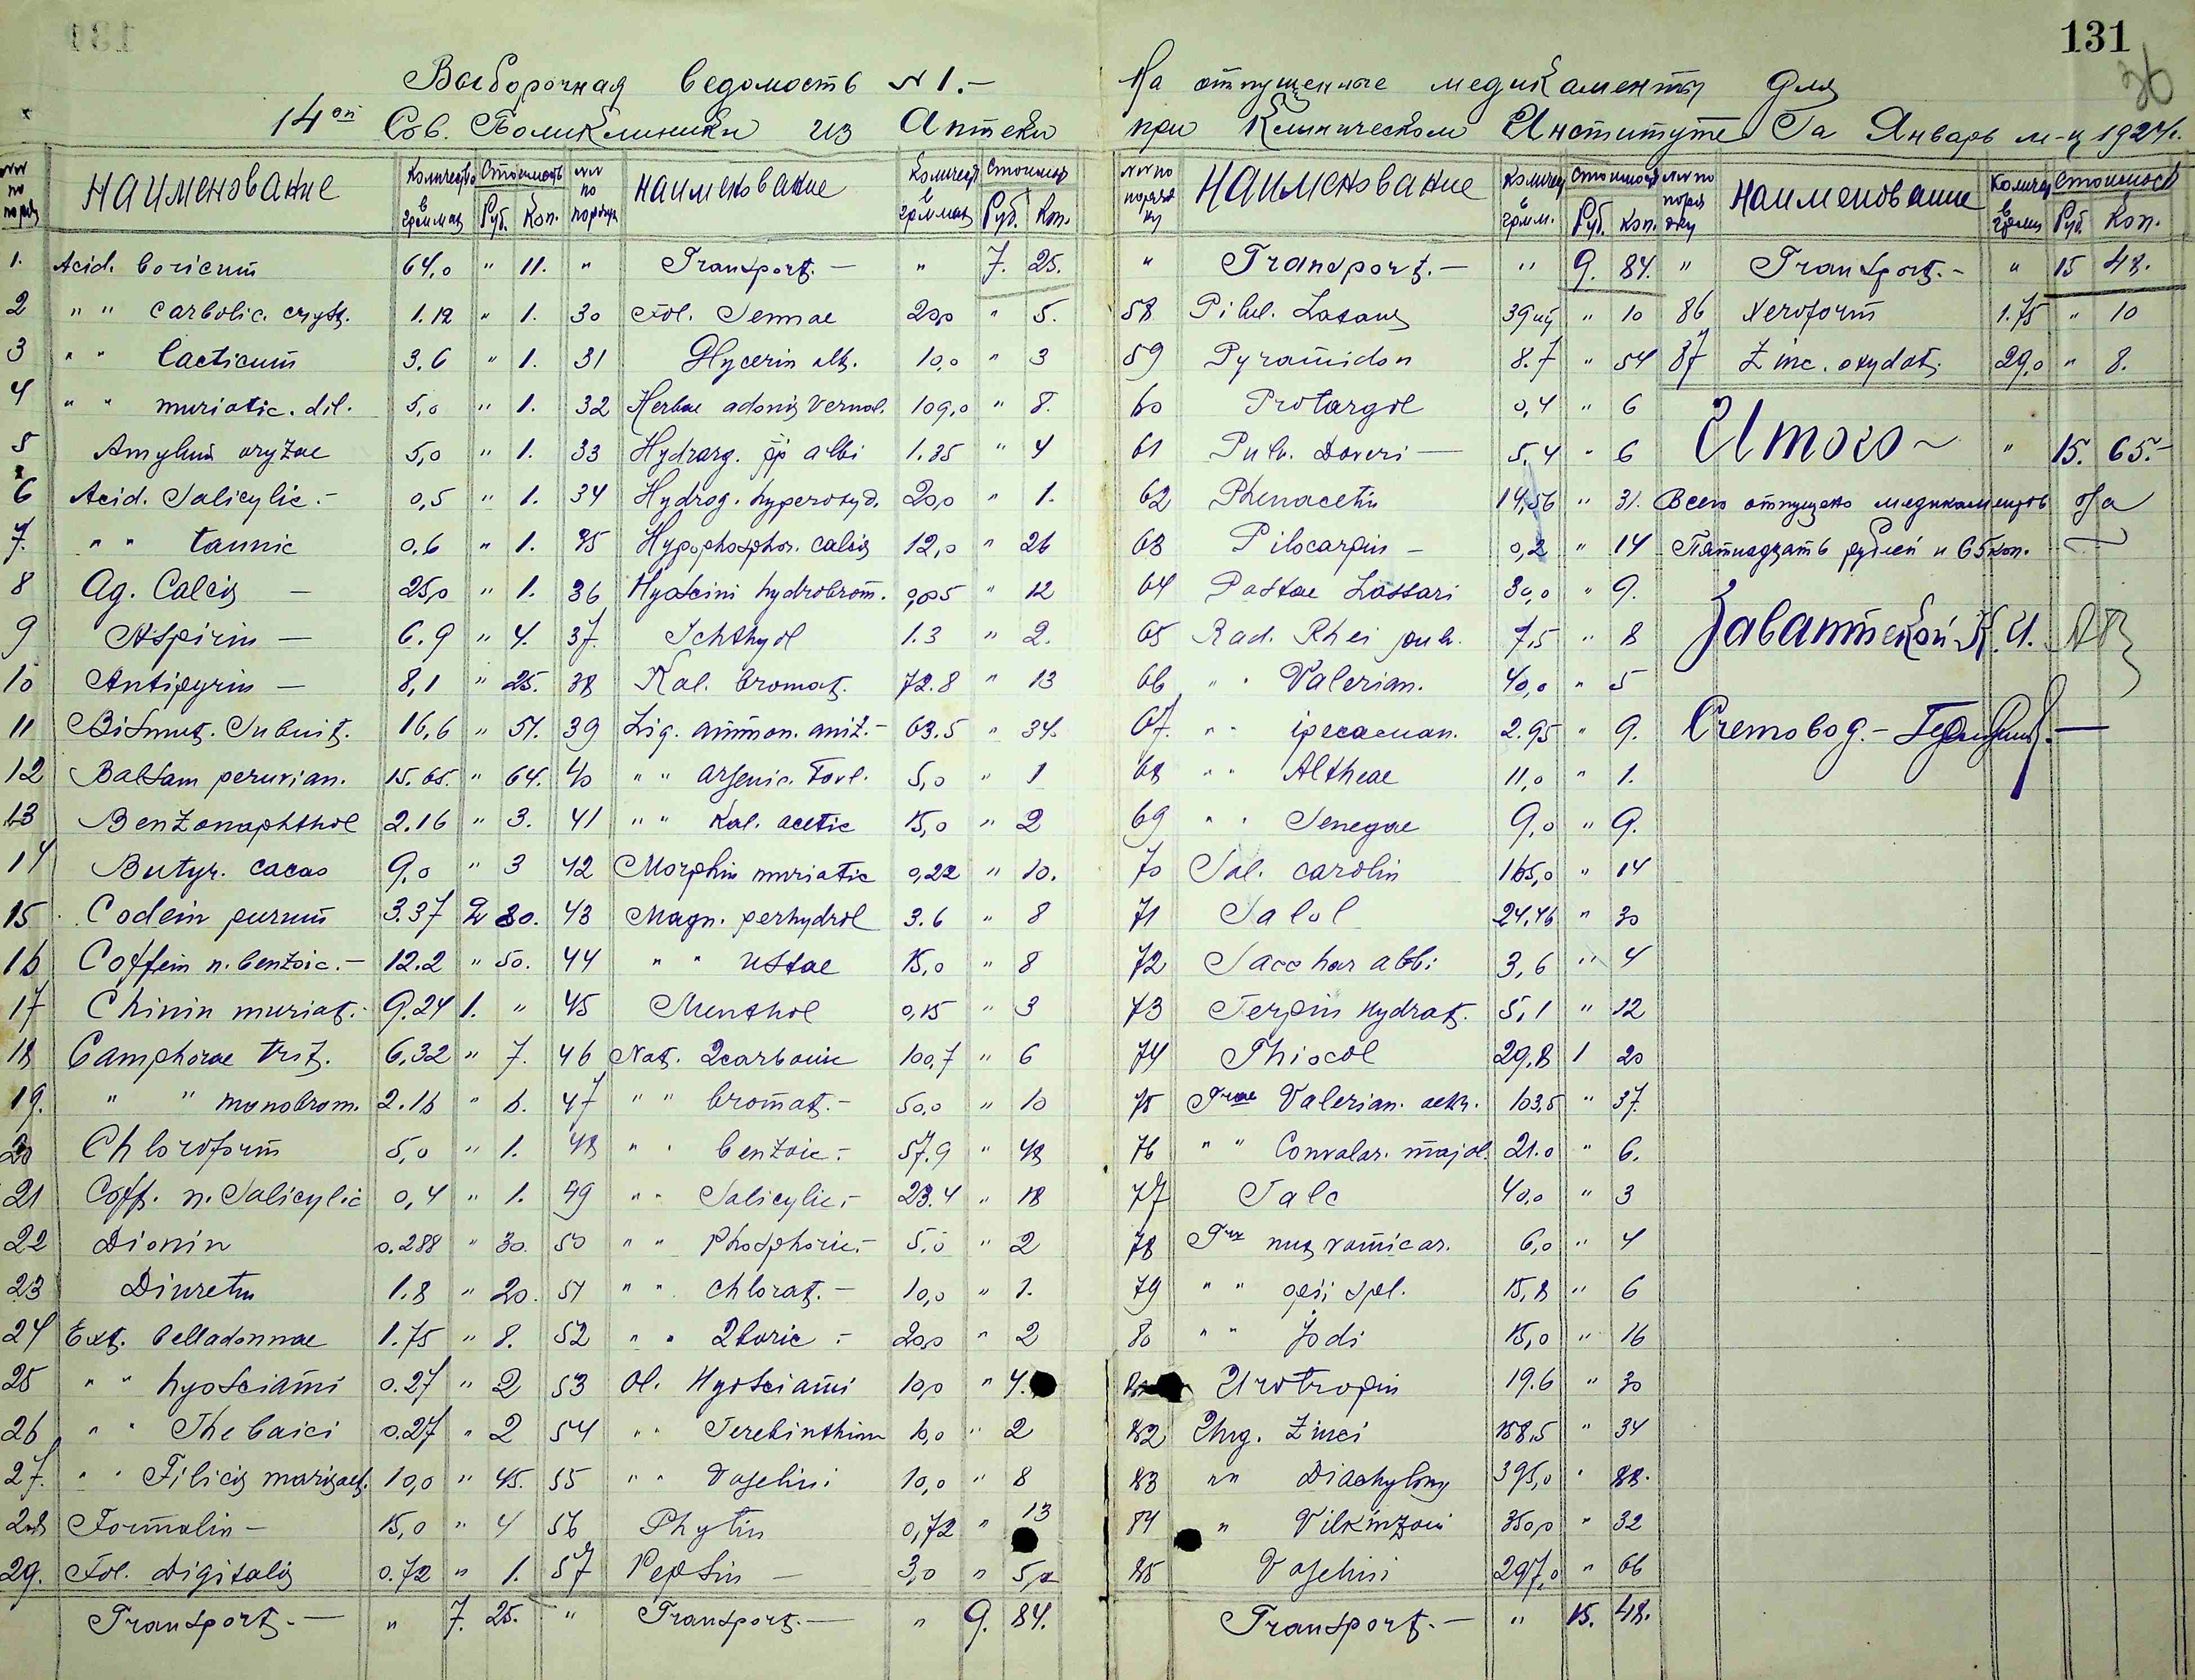 131
Выборочная ведомость №1.- На отпущенные медикаменты для
14ой Сов. Поликлиники из Аптеки при Клиническом Институте За Январь м-ц 1924г.
№№ по поряд НАИМЕНОВАНИЕ Количество в граммах Стоимость Руб. Коп.
1. Acid. boricum 64,0 " 11.
2 " " carbolic. cryst. 1.12 " 1.
3 " " lacticum 3.6 " 1.
4 " " muriatic. dil. 5,0 " 1.
5 Amylum oryzae 5,0 " 1.
6 Acid. Salicylic.- 0,5 " 1.
7. " " tannic 0.6 " 1.
8 Aq. Calcis — 25,0 " 1.
9 Aspirin — 6.9 " 4.
10 Antipyrin — 8,1 " 25.
11 Bismut. Subnit. 16,6 " 51.
12 Balsam peruvian. 15.65. " 64.
13 Benzonaphthol 2.16 " 3.
14 Butyr. cacao 9,0 " 3
15 Codein purum 3.37 2 80.
16 Coffein n. benzoic.- 12.2 " 50.
17 Chinin muriat.- 9.24 1. "
18 Camphorae trit. 6,32 " 7.
19. " " monobrom. 2.16 " 6.
20 Chloroform 5,0 " 1.
21 Coff. n. Salicylic 0,4 " 1.
22 Dionin 0.288 " 30.
23 Diuretin 1.8 " 20.
24 Ext. belladonnae 1.75 " 8.
25 " " hyosciami 0.27 " 2
26 " " Thebaici 0.27 " 2
27. " " Filicis maris aet. 10,0 " 45.
28 Formalin - 15,0 " 4
29. Fol. Digitalis 0.72 " 1.
Transport.— " 7. 25.
№№ по порядк НАИМЕНОВАНИЕ Количеств в граммах Стоимость Руб. Коп.
" Transport.— " 7. 25.
30 Fol. Sennae 20,0 " 5.
31 Glycerin alb. 10,0 " 3
32 Herbae adonis vernal. 109,0 " 8.
33 Hydrarg. pp albi 1.35 " 4
34 Hydrog. hyperoxyd. 20,0 " 1.
35 Hypophosphor. calcis 12,0 " 26
36 Hyoscini hydrobrom. 0,005 " 12
37. Ichthyol 1.3 " 2.
38 Kal. bromat. 72.8 " 13
39 Liq. ammon. anis.- 63.5 " 34.
40 " " arsenic. Fowl. 5,0 " 1
41 " " Kal. acetic 15,0 " 2
42 Morphin muriatic 0,22 " 10.
43 Magn. perhydrol 3.6 " 8
44 " " ustae 15,0 " 8
45 Menthol 0,15 " 3
46 Nat. 2carbonic 100,7 " 6
47 " " bromat.- 50,0 " 10
48 " " benzoic.- 57.9 " 48
49 " " Salicylic.- 23.4 " 18
50 " " Phosphoric.- 5.0 " 2
51 " " chlorat.- 10,0 " 1.
52 " " 2boric.- 20,0 " 2
53 Ol. Hyosciami 10,0 " 4.
54 " " Terebinthin 10,0 " 2
55 " " Vaselini 10,0 " 8
56 Phytin 0,72 " 13
57 Pepsin — 3,0 " 5
Transport.— " 9. 84.
№№ по порядку НАИМЕНОВАНИЕ Количеств в грамм. Стоимость Руб. Коп.
" Transport.— " 9. 84.
58 Pilul. 39 " 10
59 Pyramidon 8.7 " 54
60 Protargol 0,4 " 6
61 Pulv. Doveri — 5.4 " 6
62 Phenacetin 14,56 " 31.
63 Pilocarpin — 0,2 " 14
64 Pastae Lassari 30,0 " 9.
65 Rad. Rhei pulv. 7,5 " 8
66 " " Valerian. 40,0 " 5
67. " " ipecacuan. 2.95 " 9.
68 " " Altheae 11,0 " 1.
69 " " Senegae 9,0 " 9.
70 Sal. carolin 165,0 " 14
71 Salol 24,46 " 30
72 Sacchar albi 3,6 " 4
73 Terpin hydrat. 5,1 " 12
74 Thiocol 29,8 1 20
75 Trae Valerian. aeth. 103,5 " 37.
76 " " Convalar. majal. 21.0 " 6.
77 Talc 40,0 " 3
78 Trae nuc vomicar. 6,0 " 4
79 " " opii spl. 15,8 " 6
80 " " Jodi 15,0 " 16
Urotropin 19.6 " 30
82 Ung. Zinci 158,5 " 34
83 " " Diachylony 395,0 " 88.
84 " Vilkinzoni 350,0 " 32
85 Vaselini 297,0 " 66
Transport.— " 15. 48.
№№ по порядку Наименование Количес в грамм Стоимость Руб. Коп.
" Transport.- " 15 48.
86 Xeroform 1.75 " 10
87 Zinc. oxydat. 29,0 " 8.
Итого ~ " 15. 65.-
Всего отпущено медикаментов на
Пятнадцать рублей и 65 коп.
К. И.
Счетовод.-